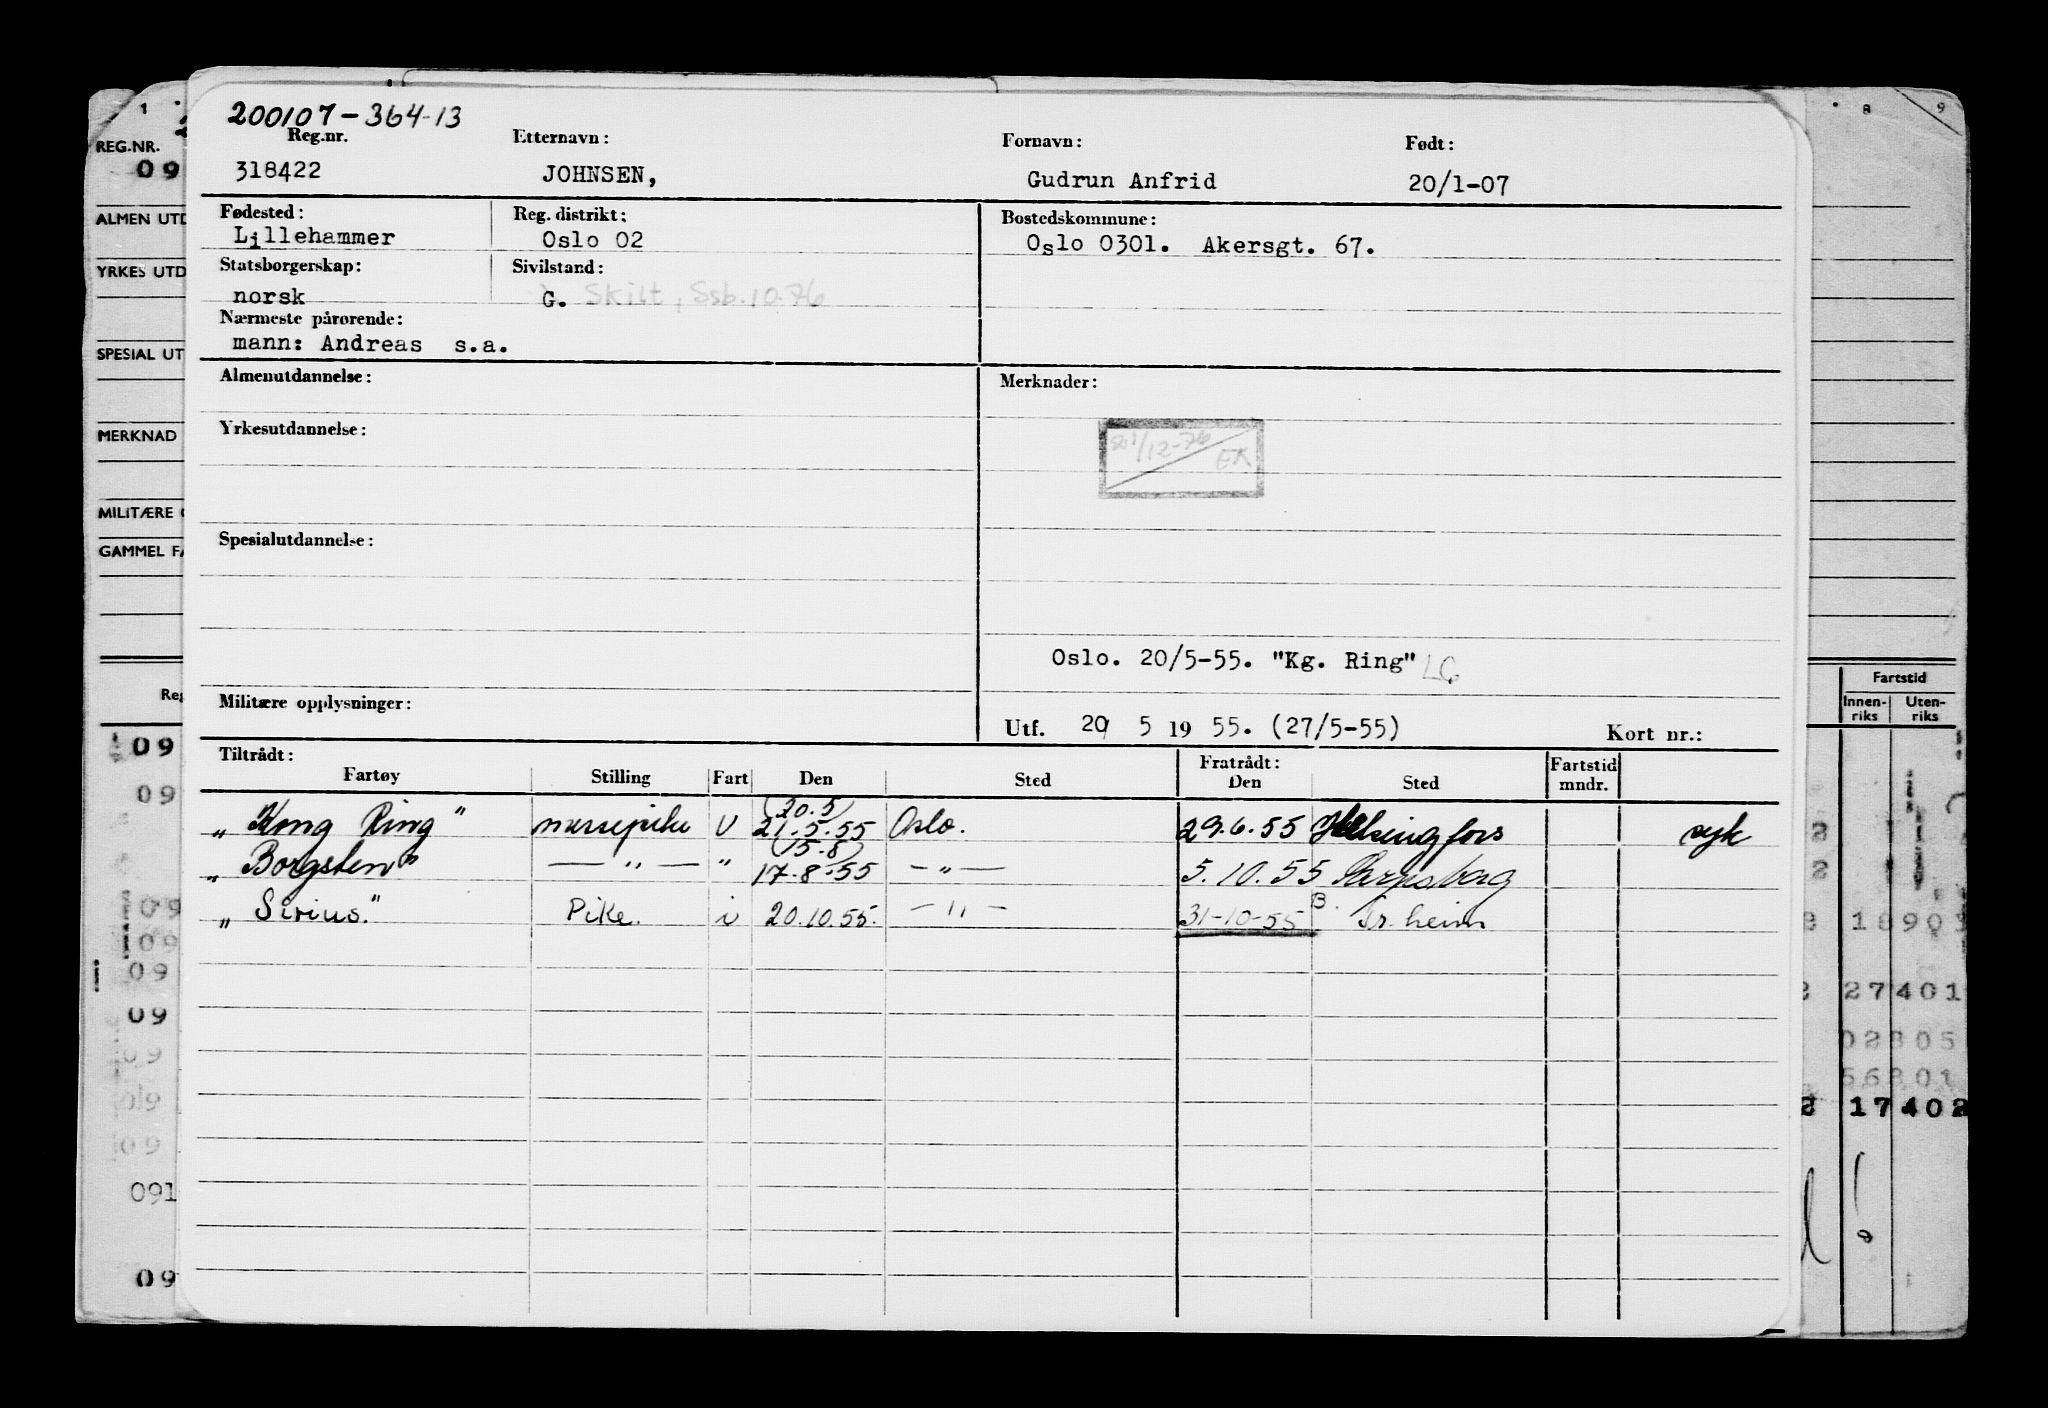 200107-364-13
Reg.nr. Etternavn: Fornavn: Født:
318422 JOHNSEN, Gudrun Anfrid 20/1-07
Fødested: Reg. distrikt: Bostedskommune:
Lillehammer Oslo 02 Oslo 0301. Akersgt. 67.
Statsborgerskap: Sivilstand:
norsk G. Skilt, Ssb. 10.76
Nærmeste pårørende:
mann: Andreas s.a.
Almenutdannelse: Merknader:
Yrkesutdannelse:
/12-76 EK
Spesialutdannelse:
Oslo. 20/5-55. "Kg. Ring" LG
Militære opplysninger:
Utf. 20 5 19 55. (27/5-55) Kort nr.:
Tiltrådt: Fratrådt: Fartstid
Fartøy Stilling Fart Den Sted Den Sted mndr.
(20.5)
„Kong Ring" messepike U 21.5.55 Oslo. 29.6.55 Helsingfors syk
(15.8)
„Borgsten" — " — " 17.8.55 — " — 5.10.55 Sarpsborg
„Sirius." Pike. i 20.10.55. — " — 31-10-55 B. Tr.heim
1 8 9
REG.NR.
09
ALMEN UTD
YRKES UTD
SPESIAL UT
MERKNAD
MILITÆRE
GAMMEL FA
Reg
Fartstid
Innen-riks Uten-riks
09
09
09
09
09
09
09
09
09
091
09
2
2
27401
02805
56801
17402